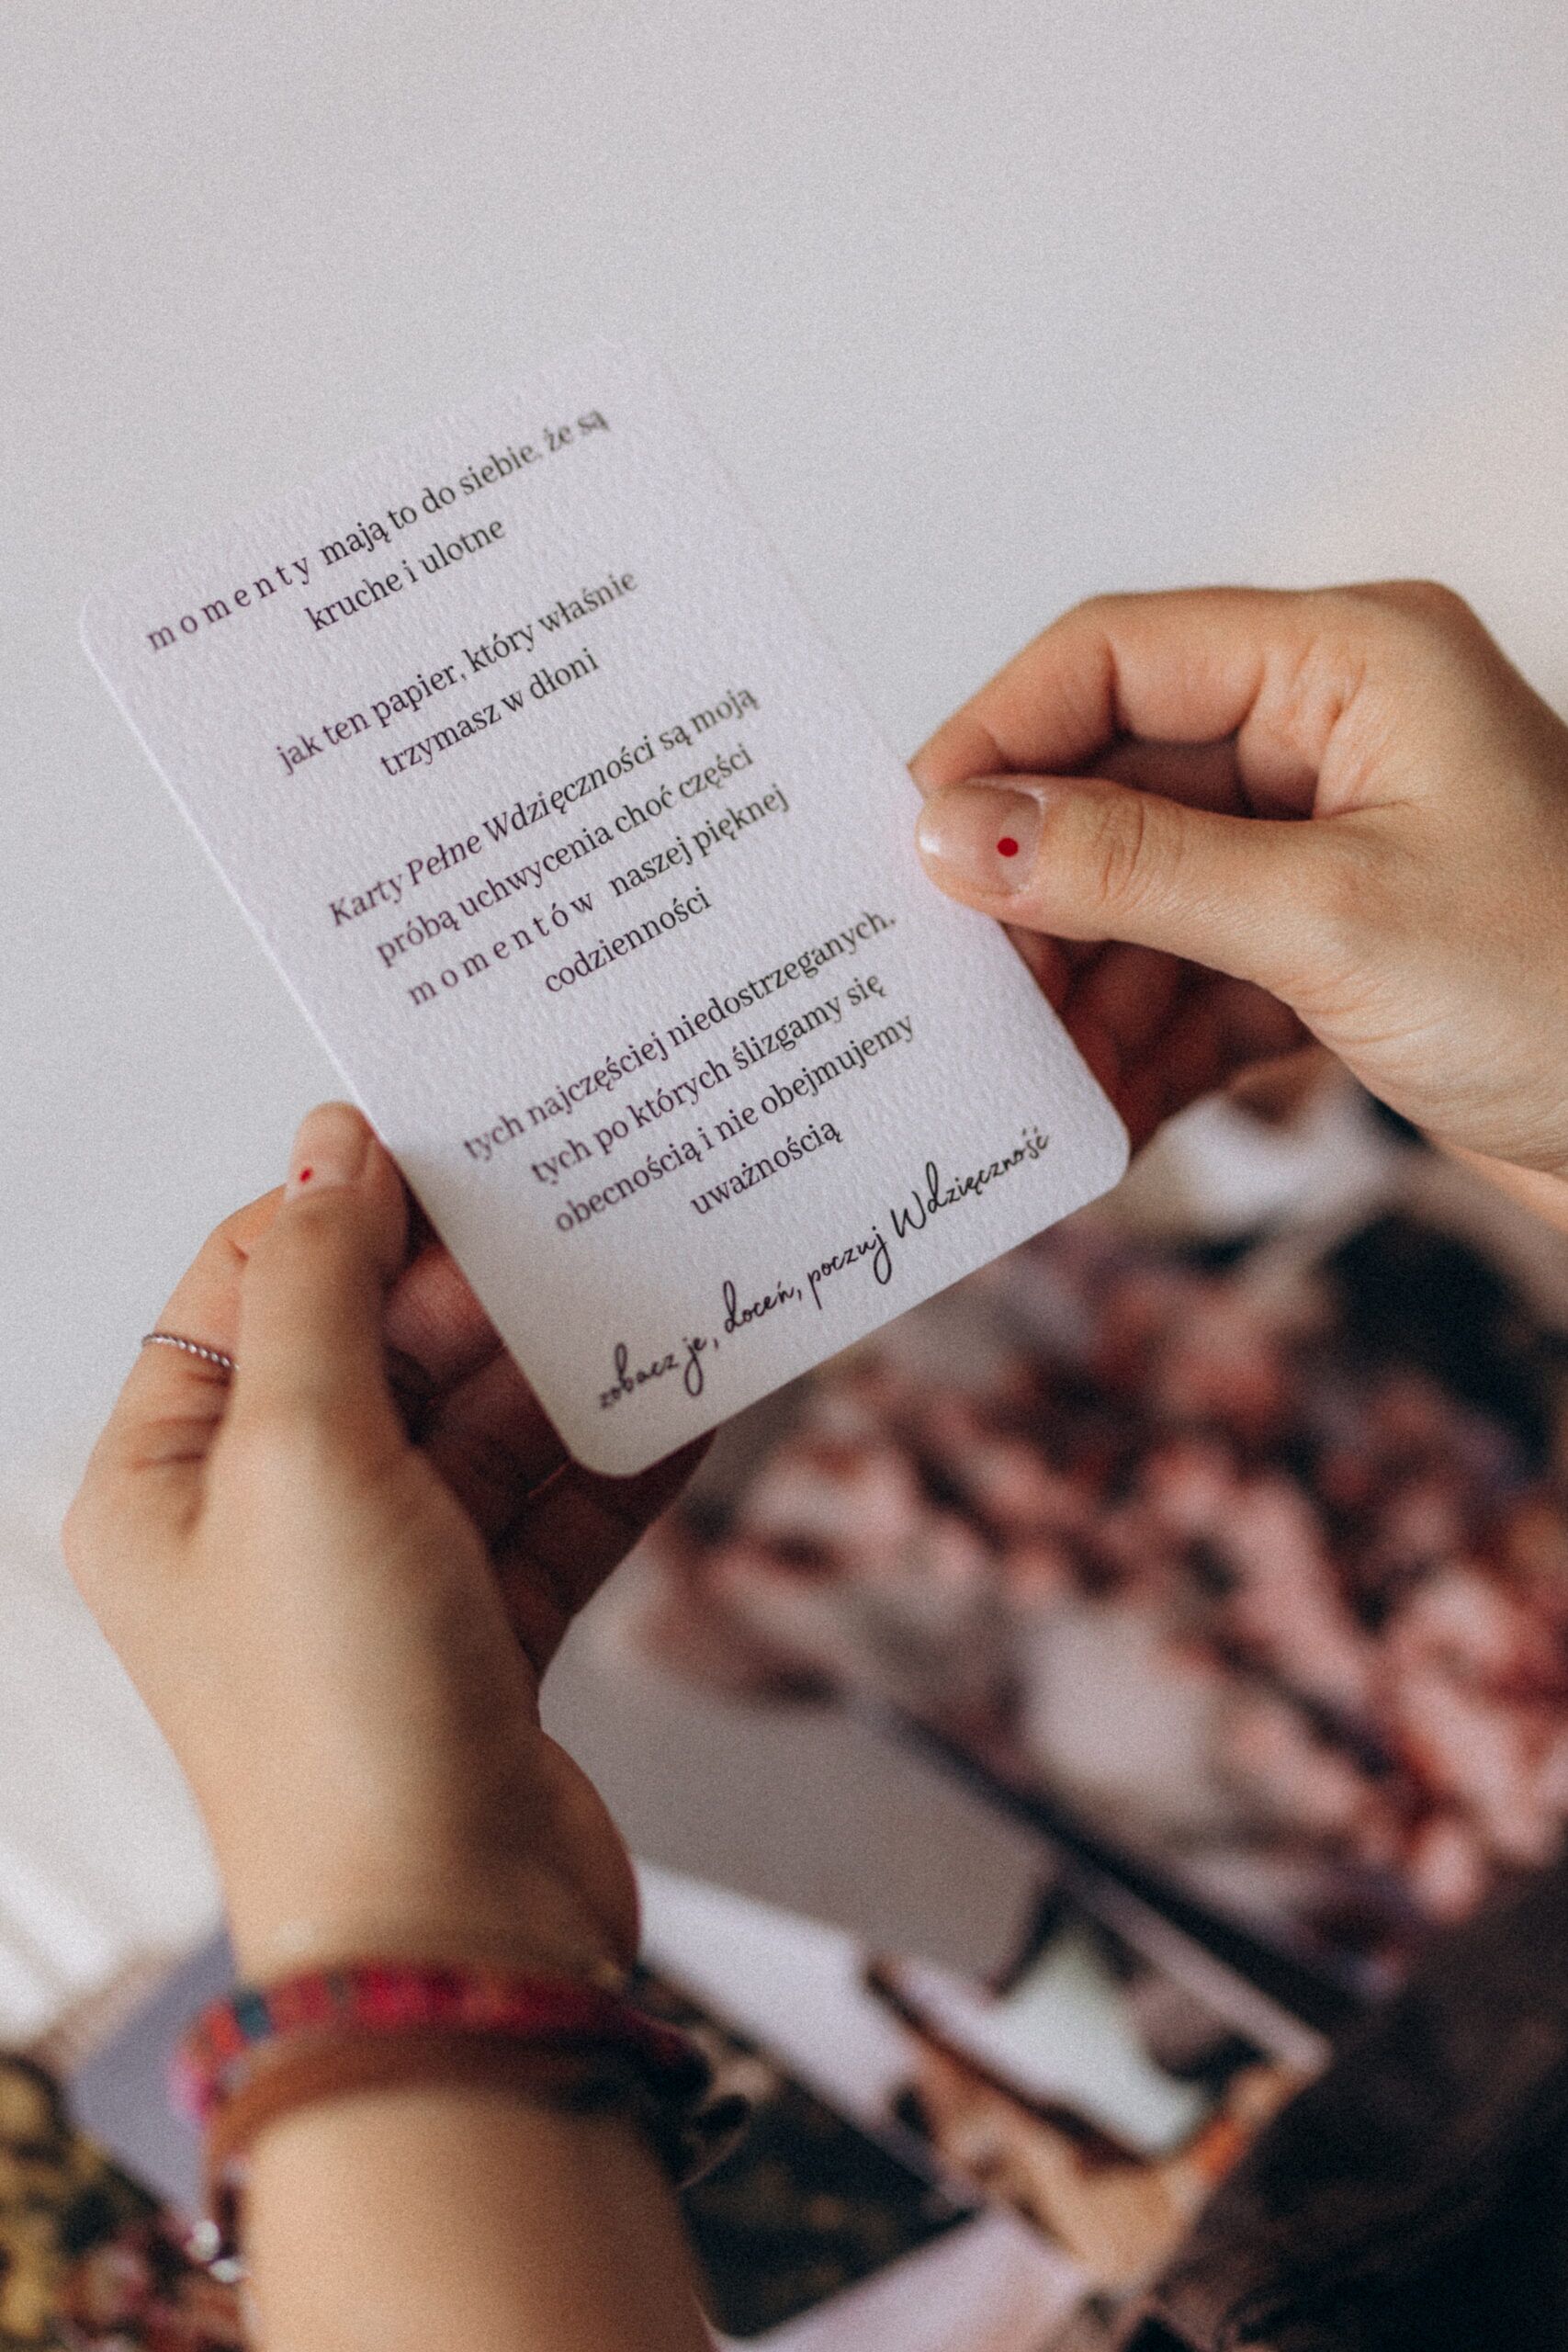 m o m e n t y mają to do siebie, że są
kruche i ulotne
jak ten papier, który właśnie
trzymasz w dłoni
Karty Pełne Wdzięczności są moją
próbą uchwycenia choć części
m o m e n t ó w naszej pięknej
codzienności
tych najczęściej niedostrzeganych.
tych po których ślizgamy się
obecnością i nie obejmujemy
uważnością
zobacz je, doceń, poczuj Wdzięczność